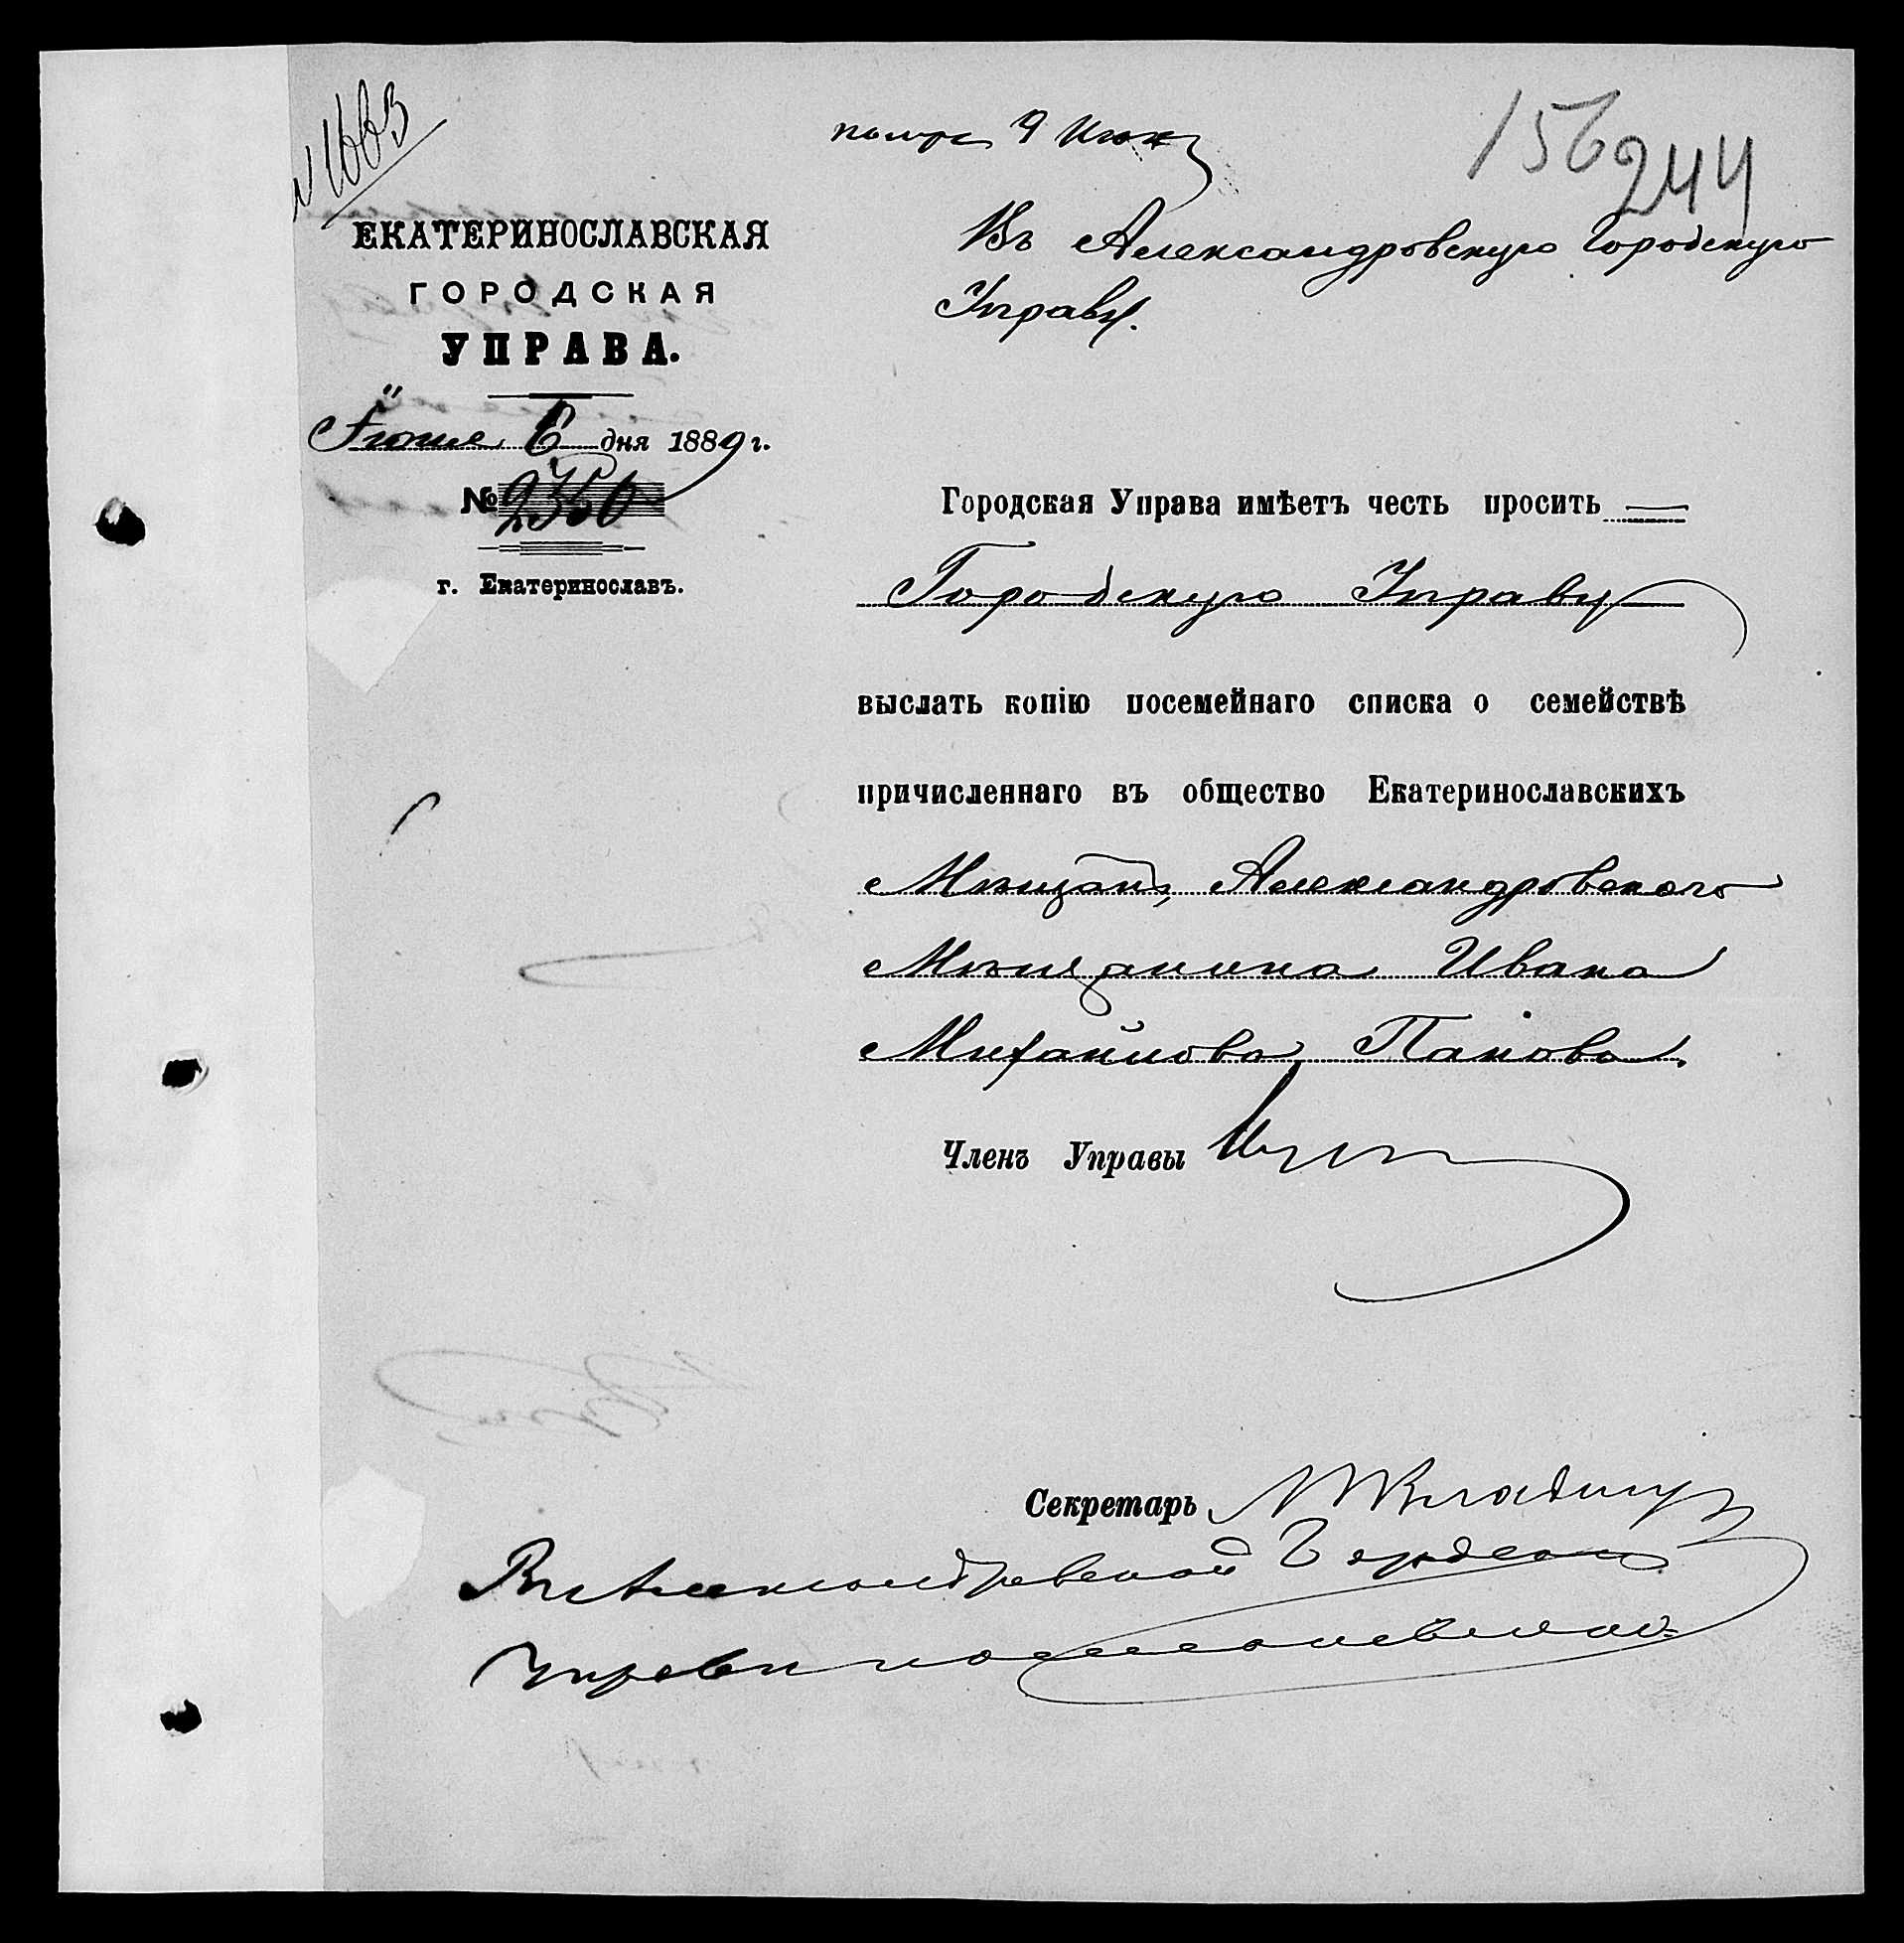 № 1663
получ. 9 Июня
156
244
ЕКАТЕРИНОСЛАВСКАЯ
ГОРОДСКАЯ
УПРАВА.
Іюня 6 дня 1889 г.
№ 2360
г. Екатеринославъ.
Въ Александровскую Городскую
Управу.
Городская Управа имѣетъ честь просить
Городскую Управу
выслать копію посемейнаго списка о семействѣ
причисленнаго въ общество Екатеринославскихъ
Мѣщанъ, Александровскаго
Мѣщанина Ивана
Михайлова Панова.
Членъ Управы
Секретарь
Въ Александровской Городской
Управѣ